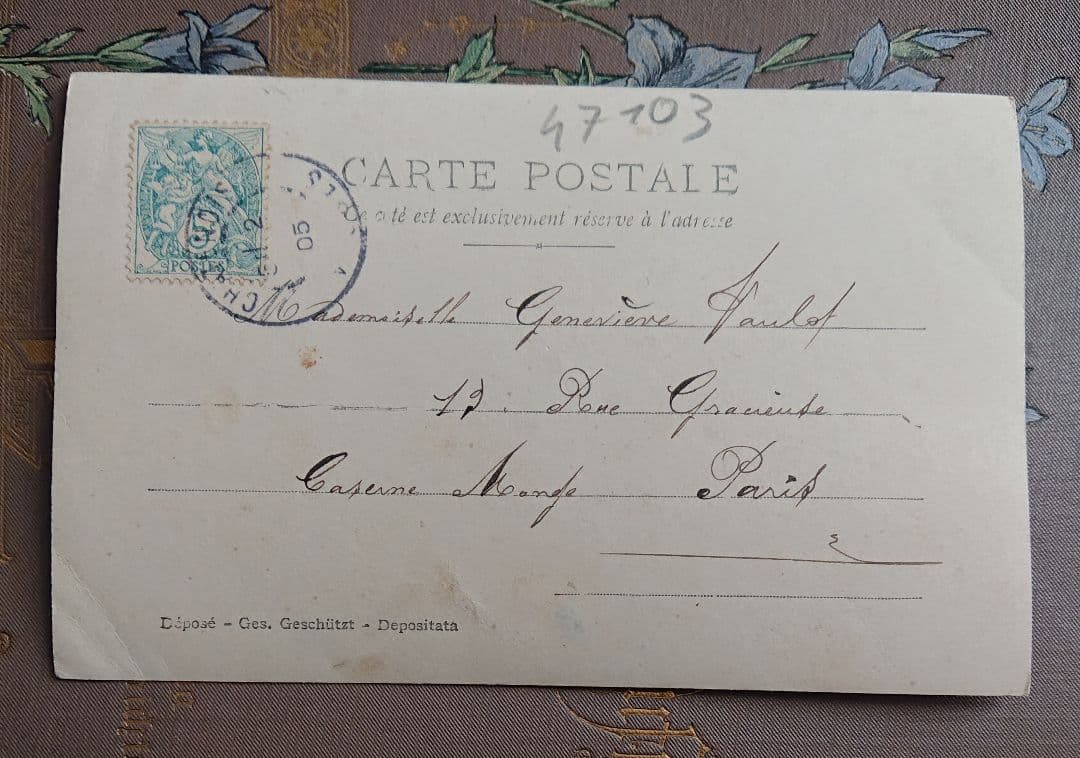 47103
CARTE POSTALE
Ce côté est exclusivement réservé à l'adresse
POSTES
05
Mademoiselle Geneviève
Rue Gracieuse
Caserne Monge Paris
Déposé - Ges. Geschützt - Depositata